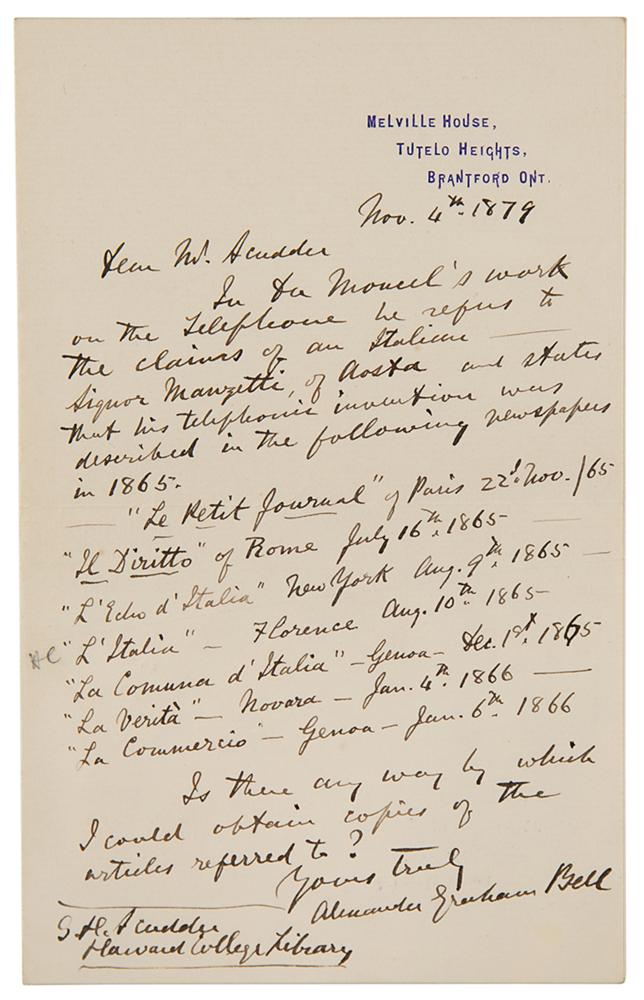 MELVILLE HOUSE,
TUTELO HEIGHTS,
BRANTFORD ONT.
Nov. 4th. 1879
Dear Mr. Scudder
In Du Moncel's work
on the Telephone he refers to
the claims of an Italian —
Signor Manzetti, of Aosta and states
that his telephonic invention was
described in the following newspapers
in 1865.
— "Le Petit Journal" of Paris 22d. Nov. /65
"Il Diritto" of Rome July 16th. 1865 —
"L'Echo d'Italia" New York Aug. 9th. 1865 —
"L'Italia" — Florence Aug. 10th. 1865 —
"La Comuna d'Italia" — Genoa — Dec. 1st. 1865
"La Verità" — Novara — Jan. 4th. 1866 —
"La Commercio" — Genoa — Jan. 6th. 1866
Is there any way by which
I could obtain copies of the
articles referred to?
Yours truly
Alexander Graham Bell
S. H. Scudder
Harvard College Library